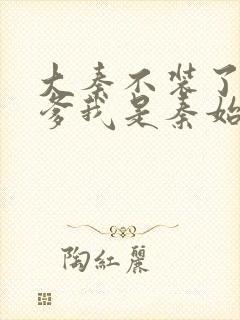 大秦不装了
爹我是秦始
陶紅麗